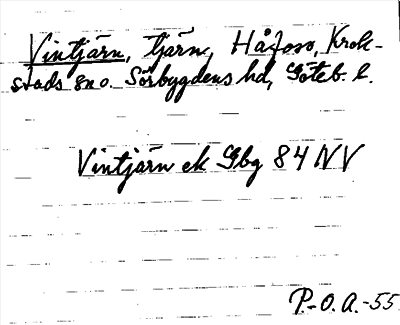 Vintjärn, tjärn, Håfoss, Krok-
stads sn o. Sörbygdens hd, Göteb. l.
Vintjärn ek Gbg 84 NV
P.-O. A. -55